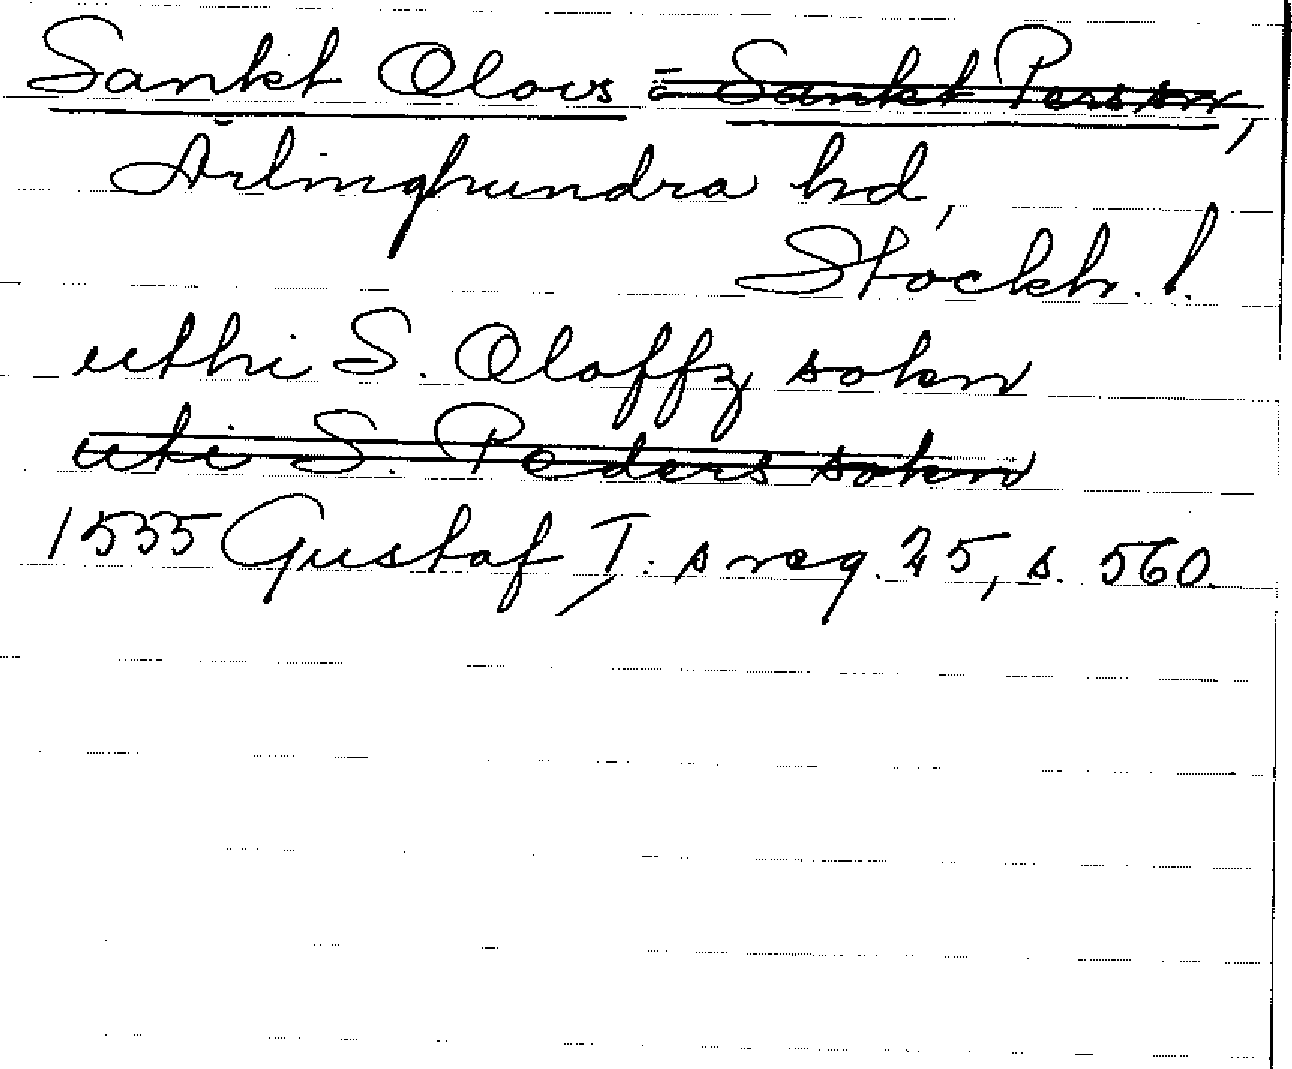 Sankt Olovs = Sankt Pers sn,
Ärlinghundra hd,
Stockh. l.
uthi S. Oloffz sokn
uti S. Peders sokn
1535 Gustaf I:s reg. 25, s. 560.